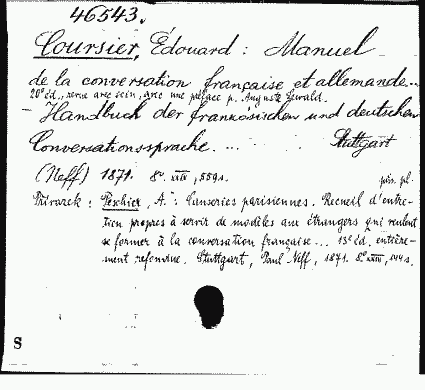 46543.
Coursier, Édouard: Manuel
de la conversation française et allemande...
20e éd., revue avec soin, avec une préface p. Auguste Lewald.
- Handbuch der französischen und deutschen
Conversationssprache. ... Stuttgart
(Neff) 1871. 8º XVI, 559 s.
: Peschier, A.: Causeries parisiennes. Recueil d'entre-
tien propres à servir de modèles aux étrangers qui veulent
se former à la conversation française... 13e éd. entière-
ment refondue. Stuttgart, Paul Neff, 1871. 8º s.
S